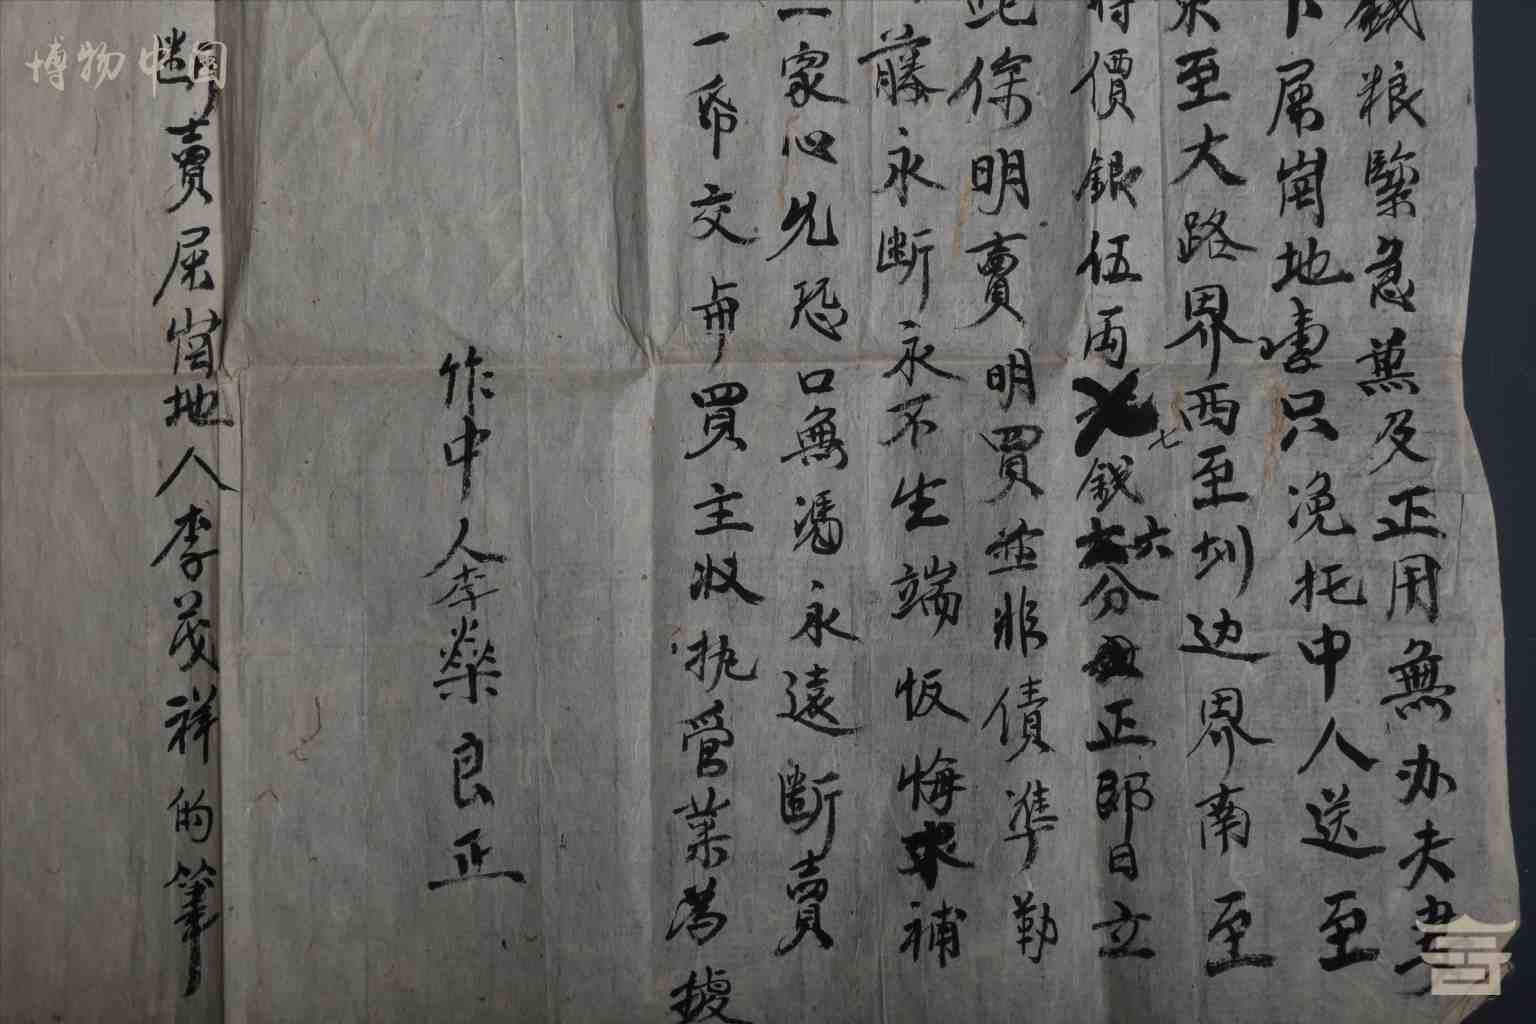 錢粮緊急蕪及正用無办夫妻
下屇崗地壹只浼托中人送至
東至大路界西至圳边界南至
得價銀伍両七錢六分正即日立
此係明賣明買並非債準勒
藤永断永不生端恢悔求補
一家心允恐口無憑永遠斷賣
一帋交與買主收执管業為據
作中人李燊良正
断賣屇崗地人李茂祥的筆
博物中国